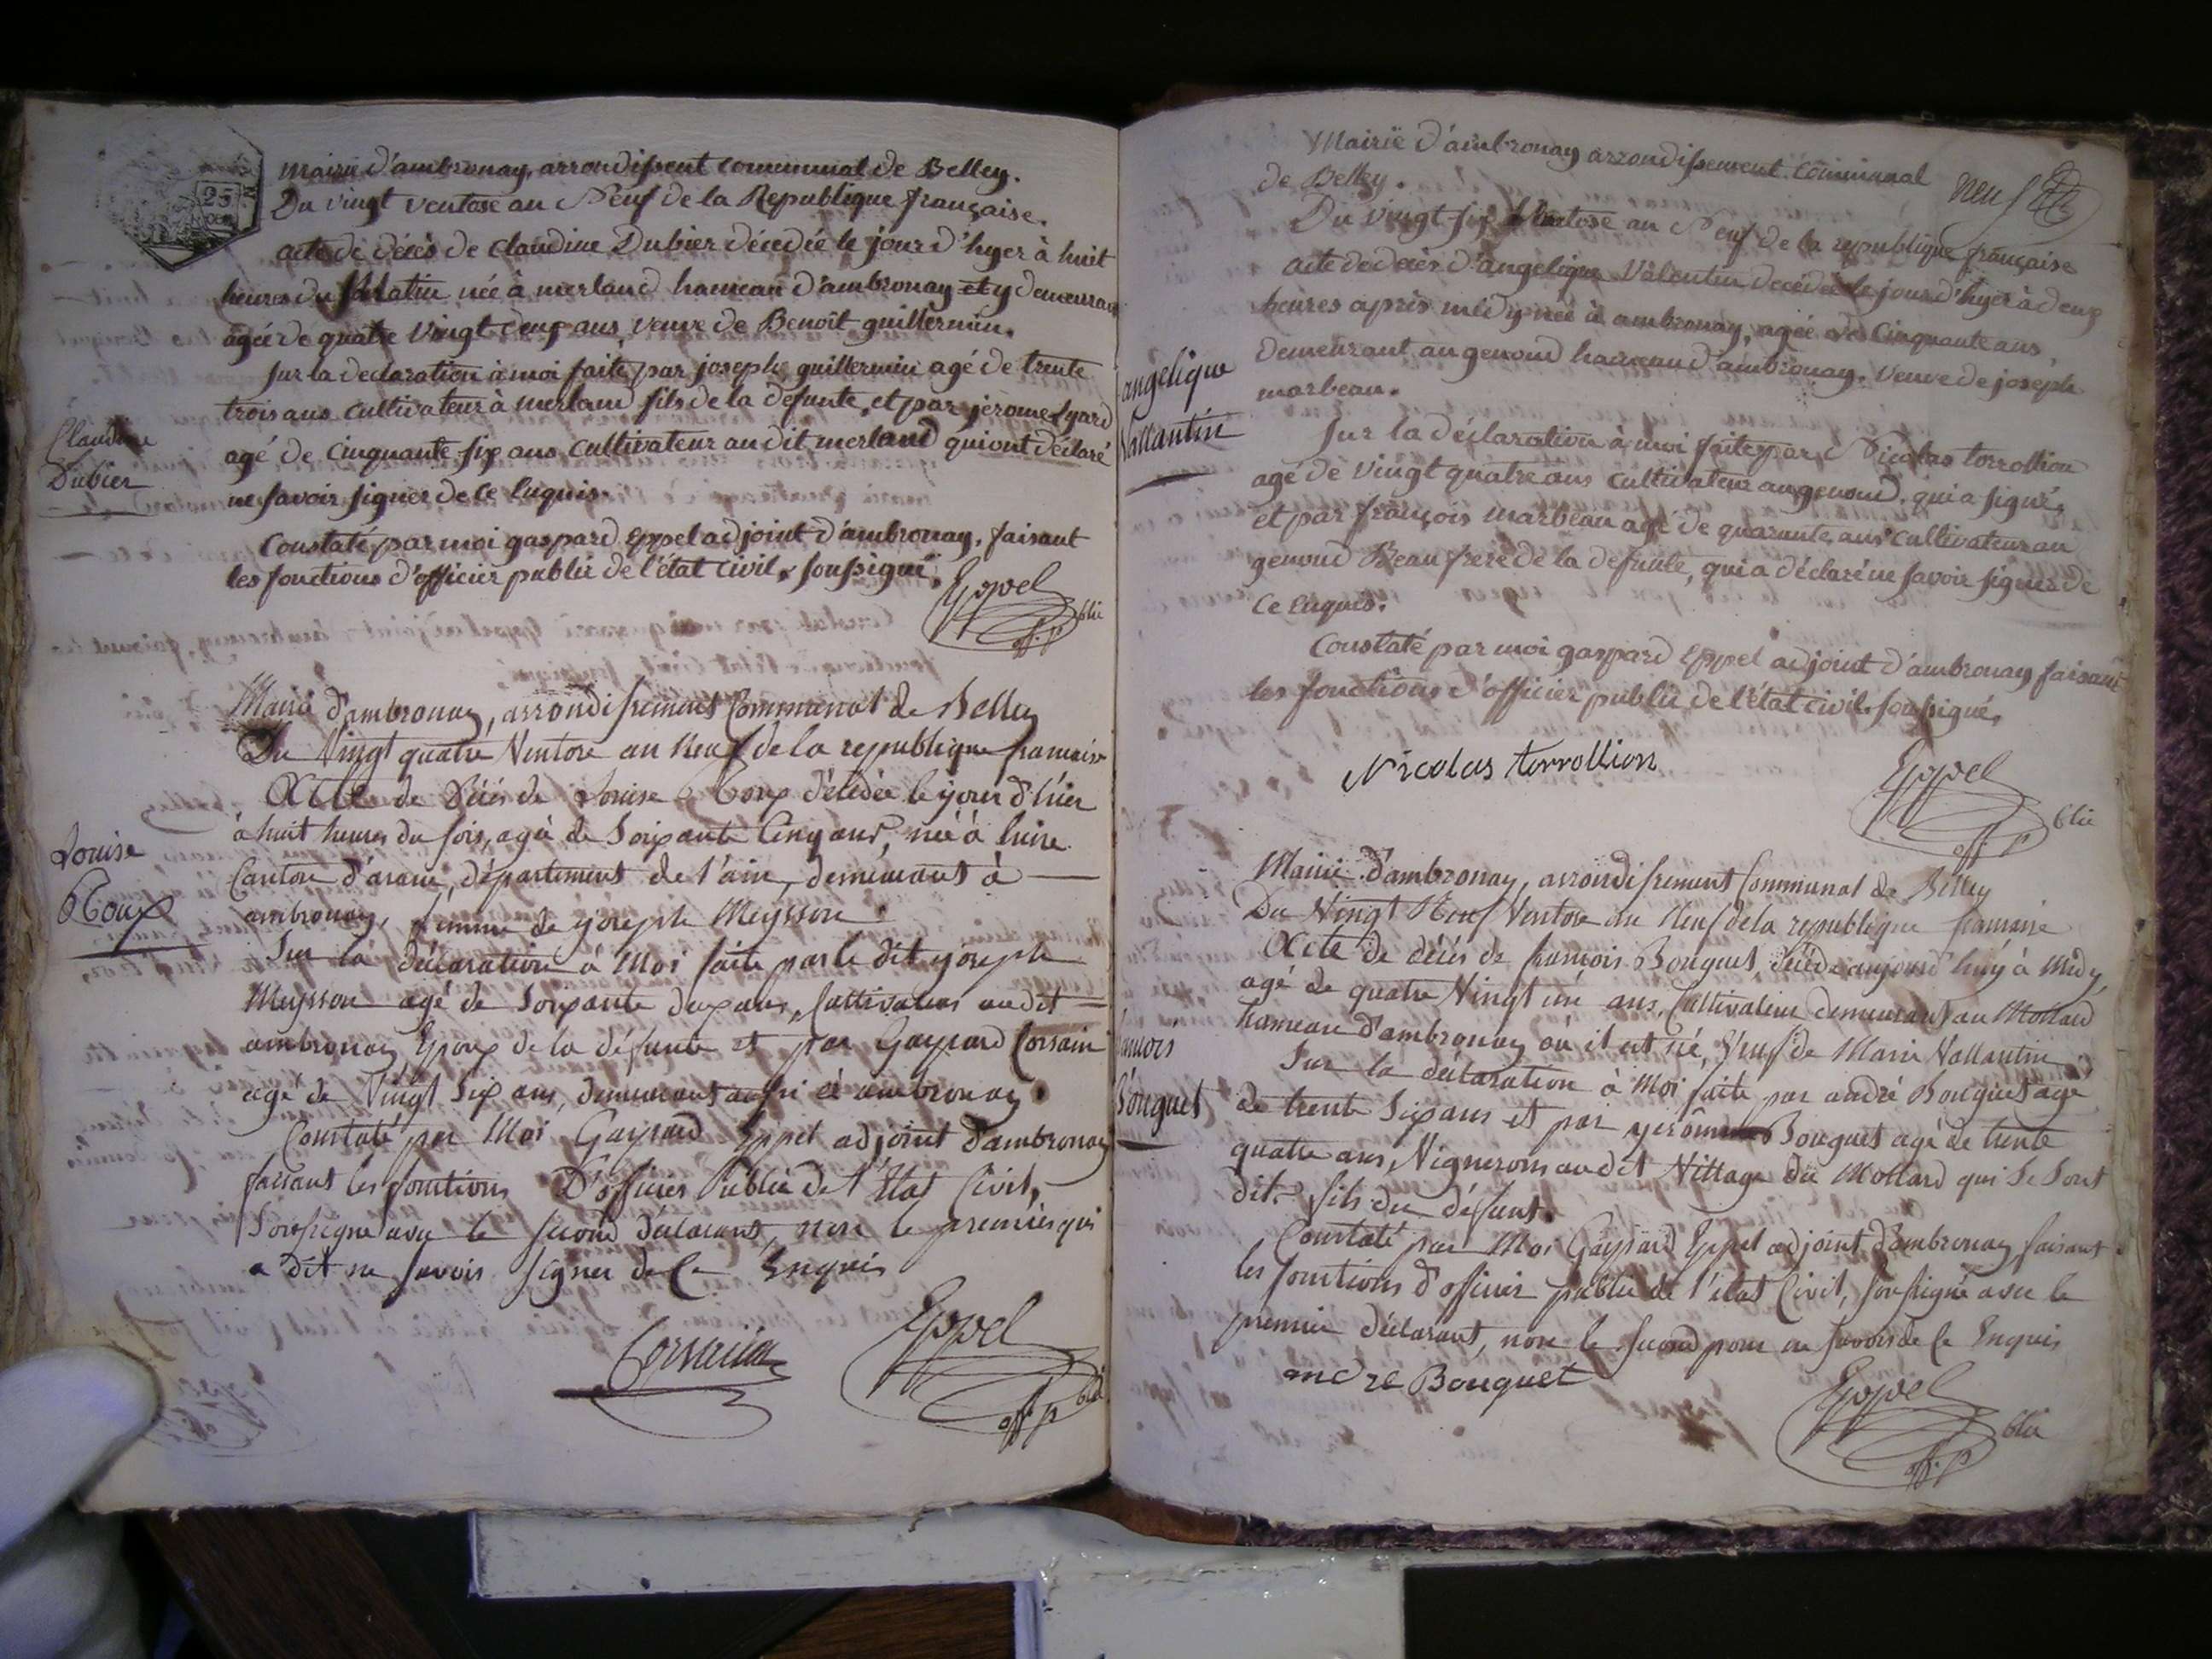 25
mairie d'ambronay, arrondissent communal de Belley.
Du vingt ventose an Neuf de la Republique française.
acte de décès de claudine Dubier décedée le jour d'hyer à huit
heures du Matin née à merland hameau d'ambronay et y demeurant
agée de quatre vingt deux ans, veuve de Benoît guillermin.
Sur la declaration à moi faite par joseph guillermin agé de trente
trois ans cultivateur à merland fils de la defunte, et par jerome Lyard
agé de cinquante six ans cultivateur au dit merland qui ont déclaré
ne savoir signer de ce Enquis.
Claudine
Dubier
Constaté par moi gaspard Eppel adjoint d'ambronay, faisant
les fonctions d'officier public de l'état civil, soussigné.
Eppel
off. p
blic
Mairie d'ambronay, arrondissement Communal de Belley
Du Vingt quatre Ventose an Neuf de la republique francaise
Acte de Décès de Louise Roux décédée le jour d'hier
à huit heures du soir, agée de Soixante Cinq ans, née à
Canton d'arane, département de l'ain, demeurant à
ambronay, femme de joseph Meysson.
Louise
Roux
Sur la déclaration à Moi faite par le dit joseph
Meysson agé de Soixante dix ans, Cultivateur audit
ambronay Epoux de la défunte et par Gaspard Corsain
agé de Vingt Six ans, demeurant aussi à ambronay.
Constaté par Moi Gaspard Eppel adjoint d'ambronay
faisant les fonctions D'officier Public de l'Etat Civil,
Soussigné avec le second déclarant, non le premier qui
a dit ne savoir signer de Ce Enquis
Corsain
Eppel
off. p
blic
Mairie d'ambronay arrondissement communal
de Belley.
neuf
Du vingt six Ventose an Neuf de la republique française
acte de décès d'angelique Valentin decédée le jour d'hyer à deux
heures après midy née à ambronay, agée de Cinquante ans,
demeurant au genoud hameau d'ambronay. veuve de joseph
marbeau.
angelique
Vallantin
Sur la déclaration à moi faite par Nicolas torrollion
agé de vingt quatre ans cultivateur au genoud, qui a signé,
et par françois marbeau agé de quarante ans cultivateur au
genoud Beau frere de la defunte, qui a déclaré ne savoir signer de
ce enquis.
Constaté par moi gaspard Eppel adjoint d'ambronay faisant
les fonctions d'officier public de l'état civil soussigné,
Nicolas torrollion
Eppel
off. p
blic
Mairie d'ambronay, arrondissement Communal de Belley
Du Vingt Neuf Ventose an Neuf de la republique francaise
Acte de décès de francois Bouquet, décédé aujourd'huy à Midy,
agé de quatre Vingt un ans, Cultivateur demeurant au Mollard
hameau d'ambronay où il est né, Veuf de Marie Vallantin
francois
Bouquet
Sur la déclaration à Moi faite par andré Bouquet agé
de trente Six ans et par yerôme Bouquet agé de trente
quatre ans, Vignerons au dit Village du Mollard qui Se Sont
dit fils du défunt.
Constaté par Moi Gaspard Eppel adjoint d'ambronay faisant
les fonctions d'officier public de l'état Civil, soussigné avec le
premier déclarant, non le second pour ne savoir de Ce Enquis
andre Bouquet
Eppel
off. p
blic